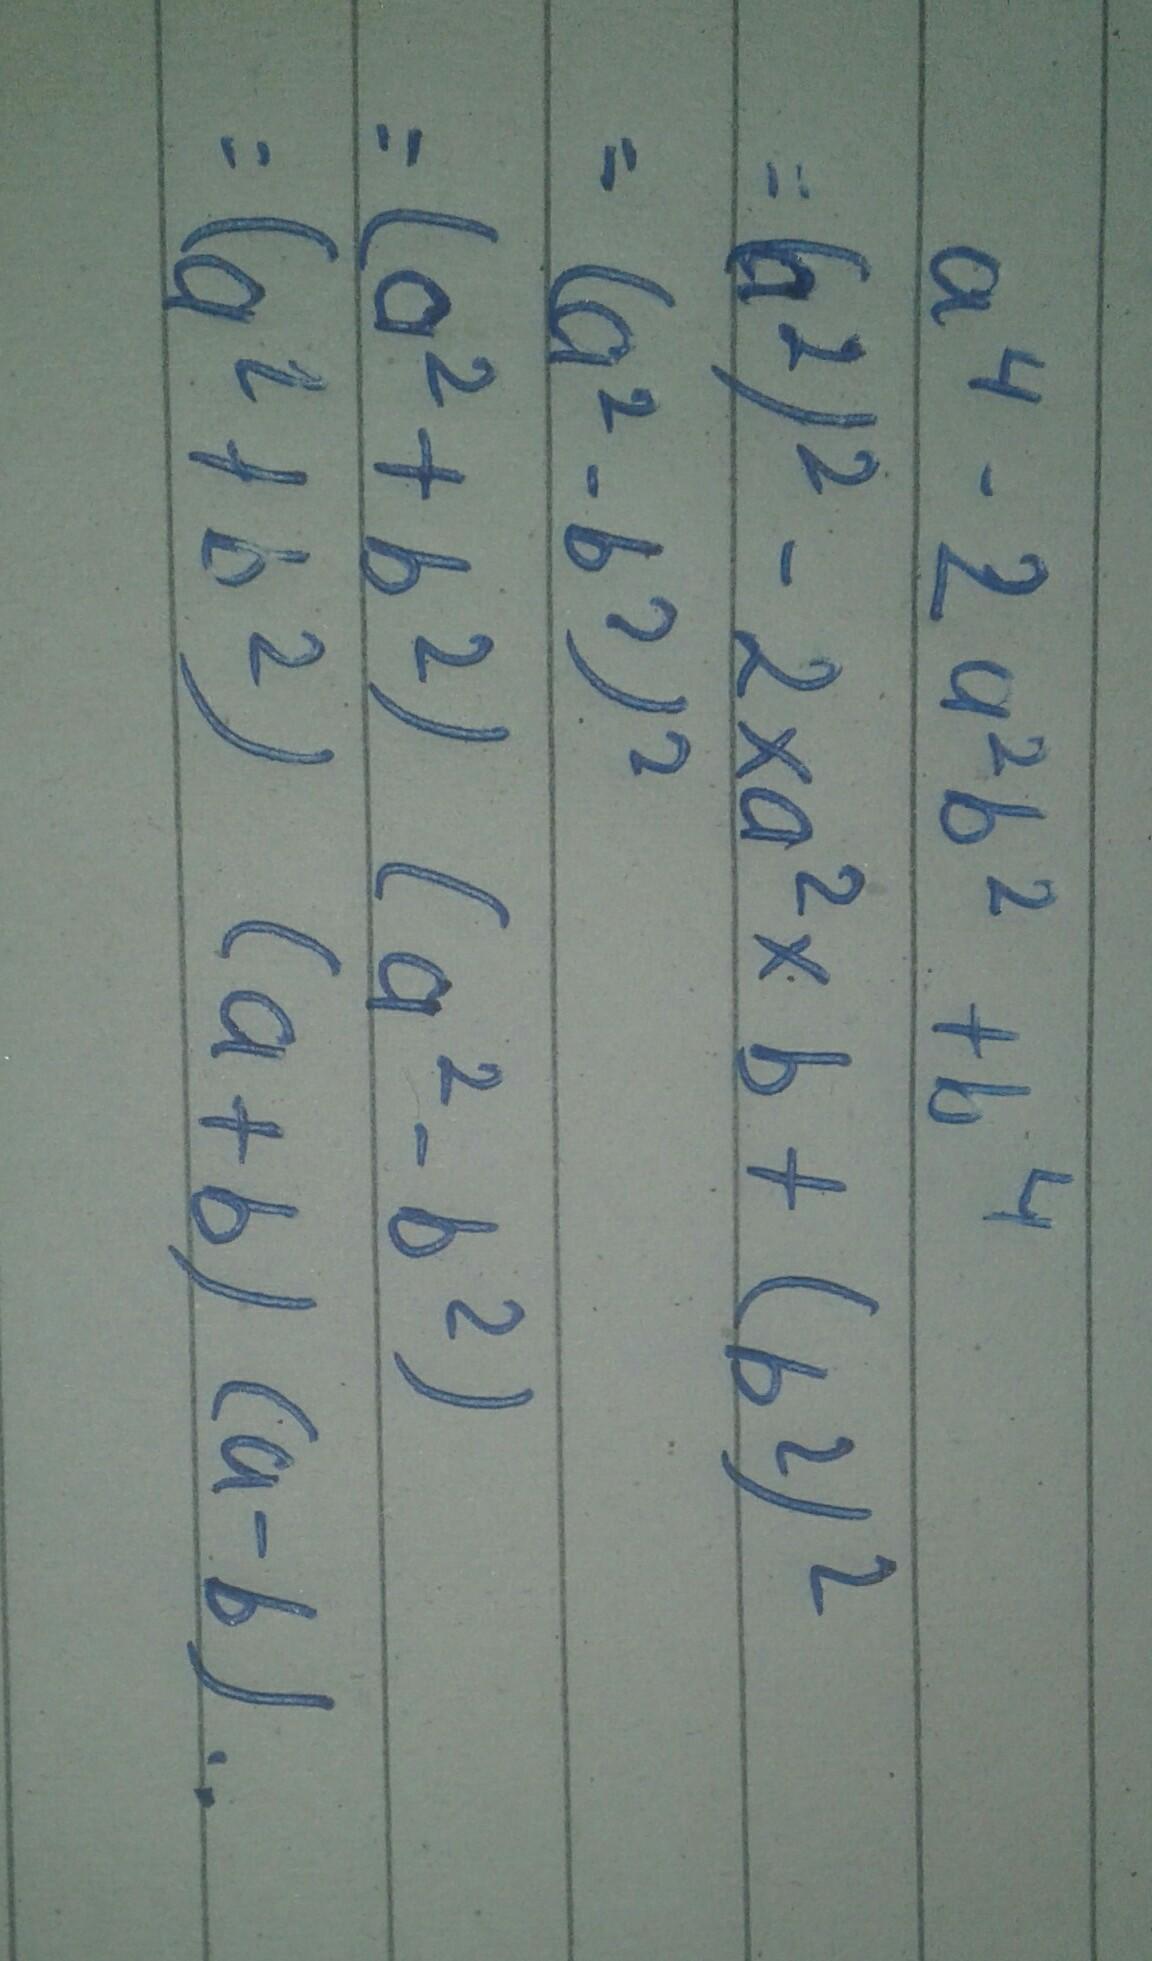 a⁴ - 2a²b² + b⁴
= (a²)² - 2xa²x b + (b²)²
= (a² - b²)²
= (a² + b²) (a² - b²)
= (a² + b²) (a + b) (a - b).